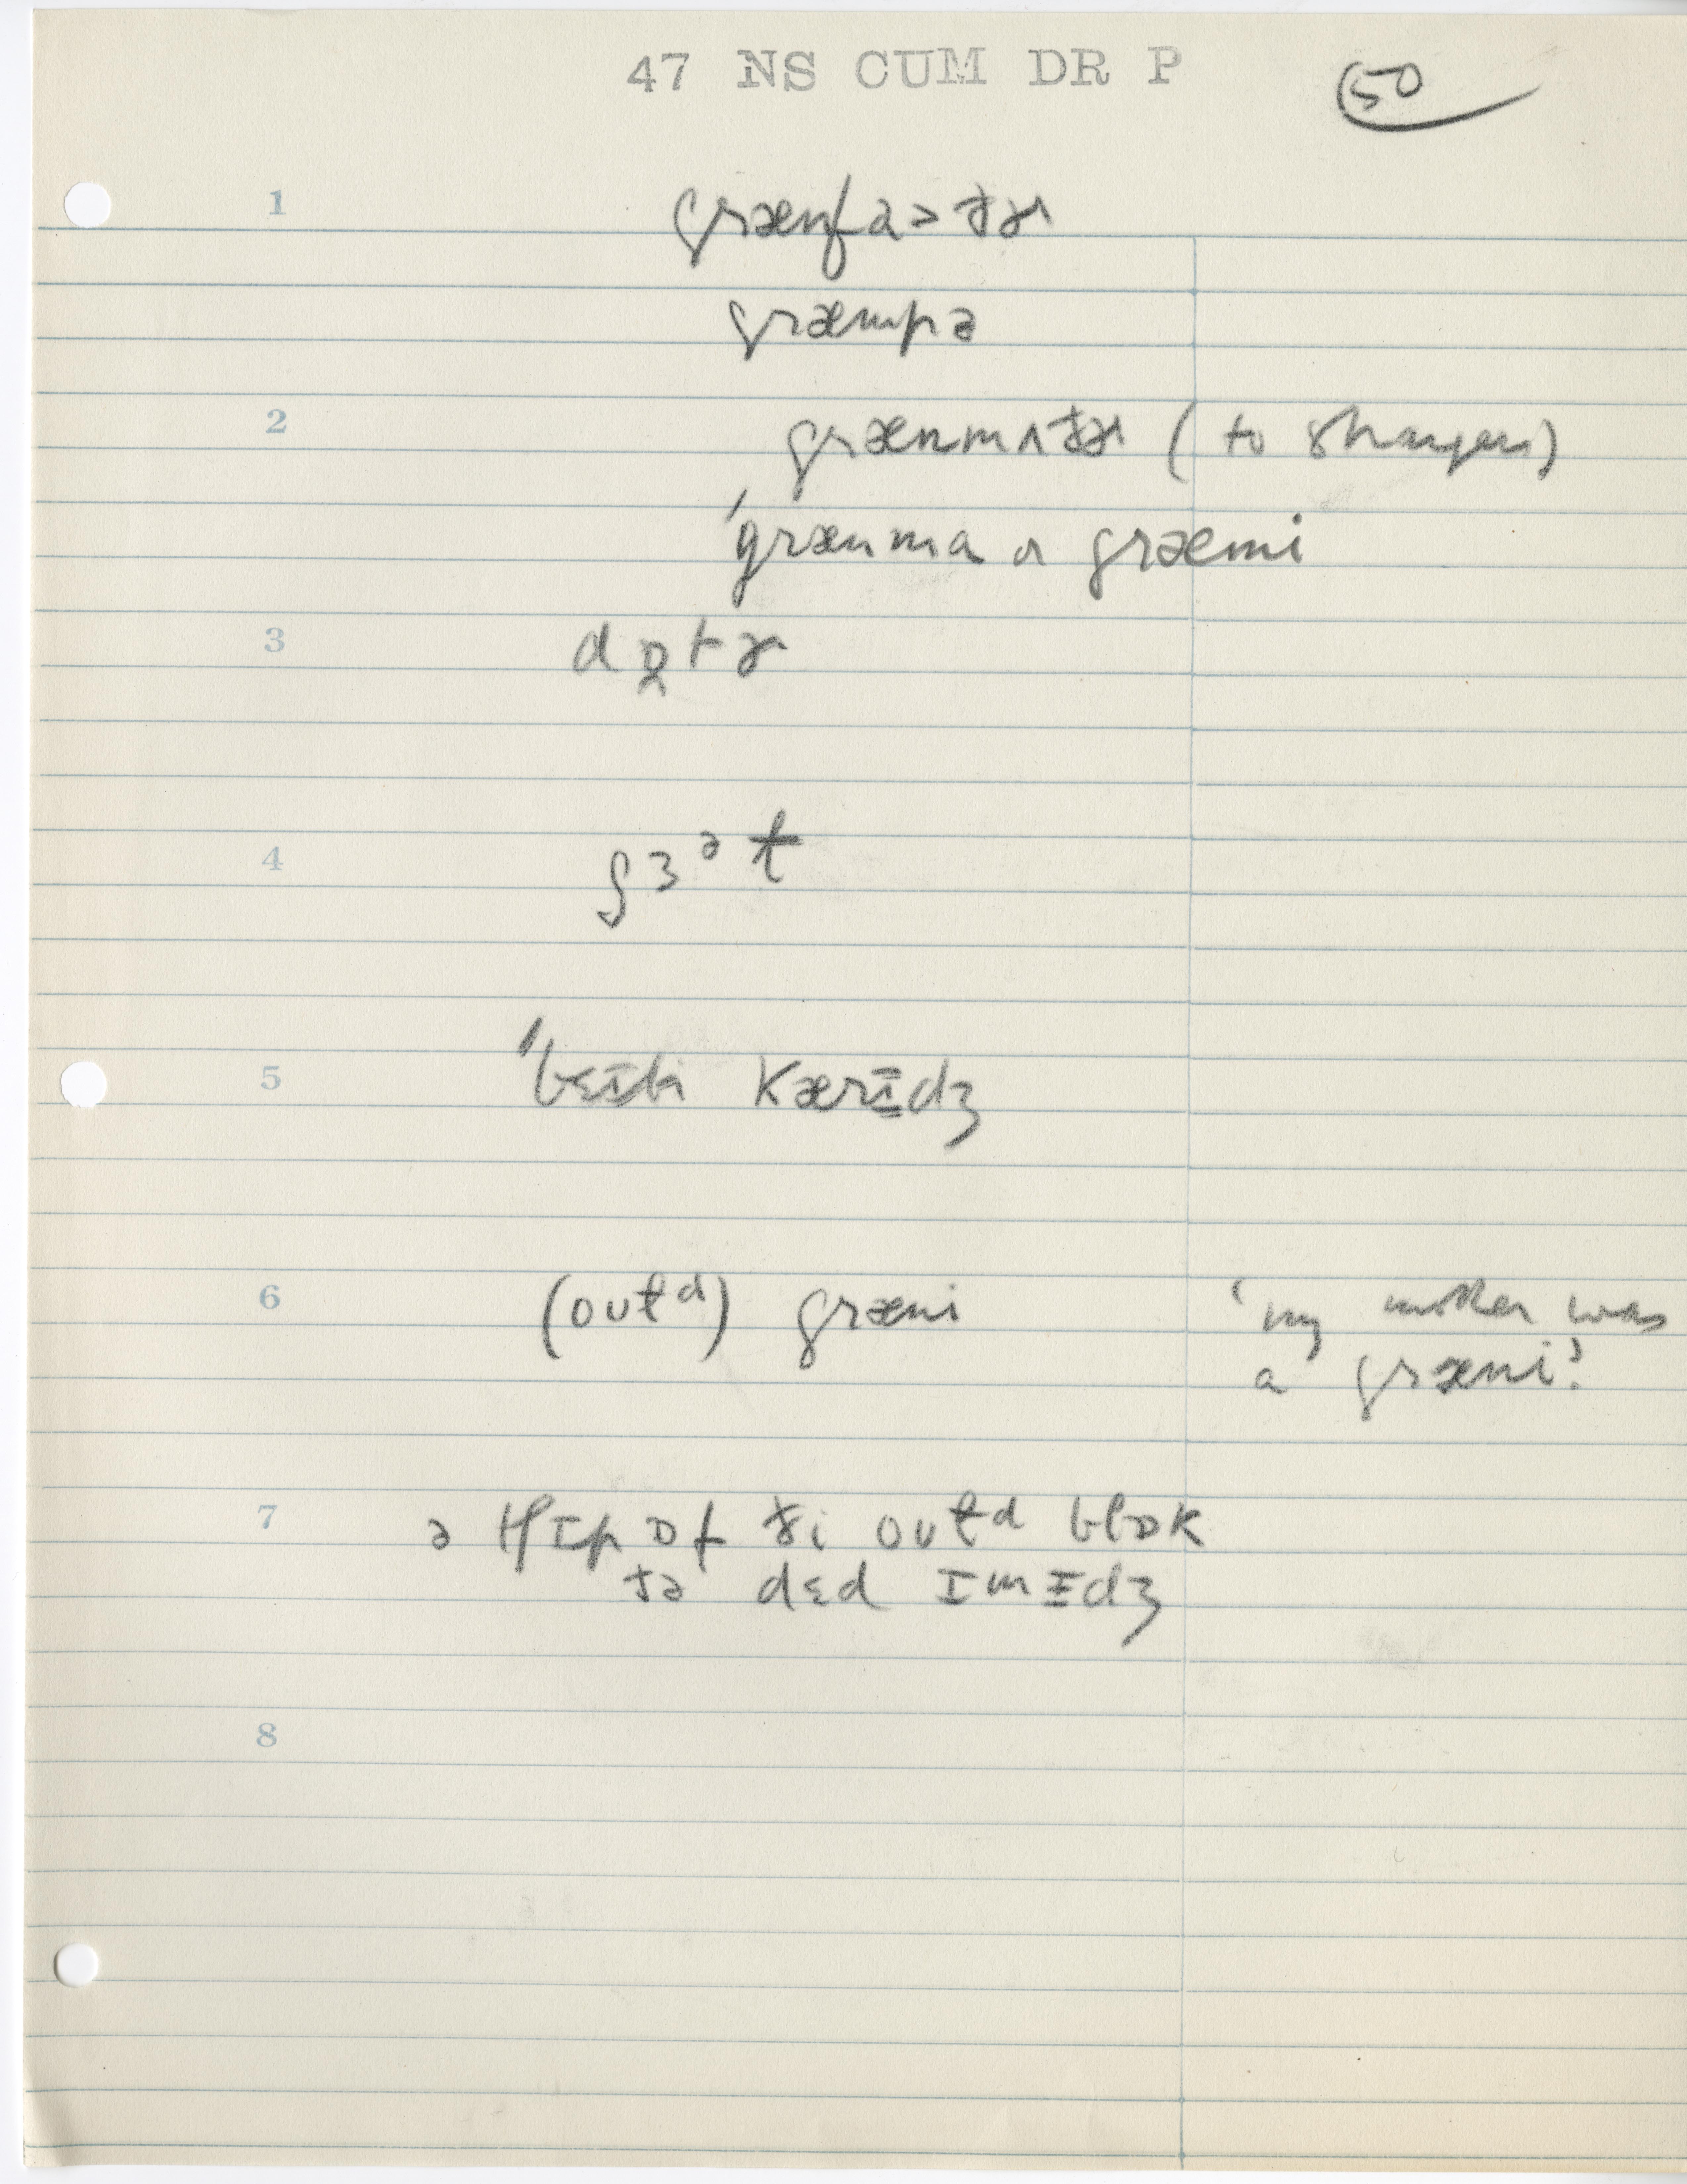 47 NS CUM DR P
50
1 grænfa˃ðɚ
græmpə
2 grænmʌðɚ (to strangers)
ˈgrænma or græmi
3 dɒ̨tɚ
4 gɜᵊɫ
5 ˈbɛɪbi kærɪdʒ
6 (oʊɫᵈ) græni 'my mother was
a græni.'
7 ə tʃɪp ɒf ði oʊɫᵈ blɒk
ðə dɛd ɪmɪdʒ
8